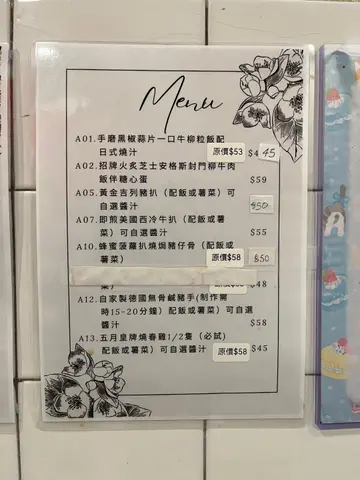 Menu
A01.手磨黑椒蒜片一口牛柳粒飯配
日式燒汁 原價$53 $4 45
A02.招牌火炙芝士安格斯封門柳牛肉
飯伴糖心蛋 $59
A05.黃金吉列豬扒（配飯或薯菜）可
自選醬汁 $50
A07.即煎美國西冷牛扒（配飯或薯
菜）可自選醬汁 $55
A10.蜂蜜菠蘿扒燒焗豬仔骨（配飯或
薯菜） 原價$58 $50
$48
A12.自家製德國無骨鹹豬手(制作需
時15-20分鐘）配飯或薯菜）可自選
醬汁 $58
A13.五月皇牌燒春雞1/2隻（必試）
配飯或薯菜）可自選醬汁 原價$58 $45